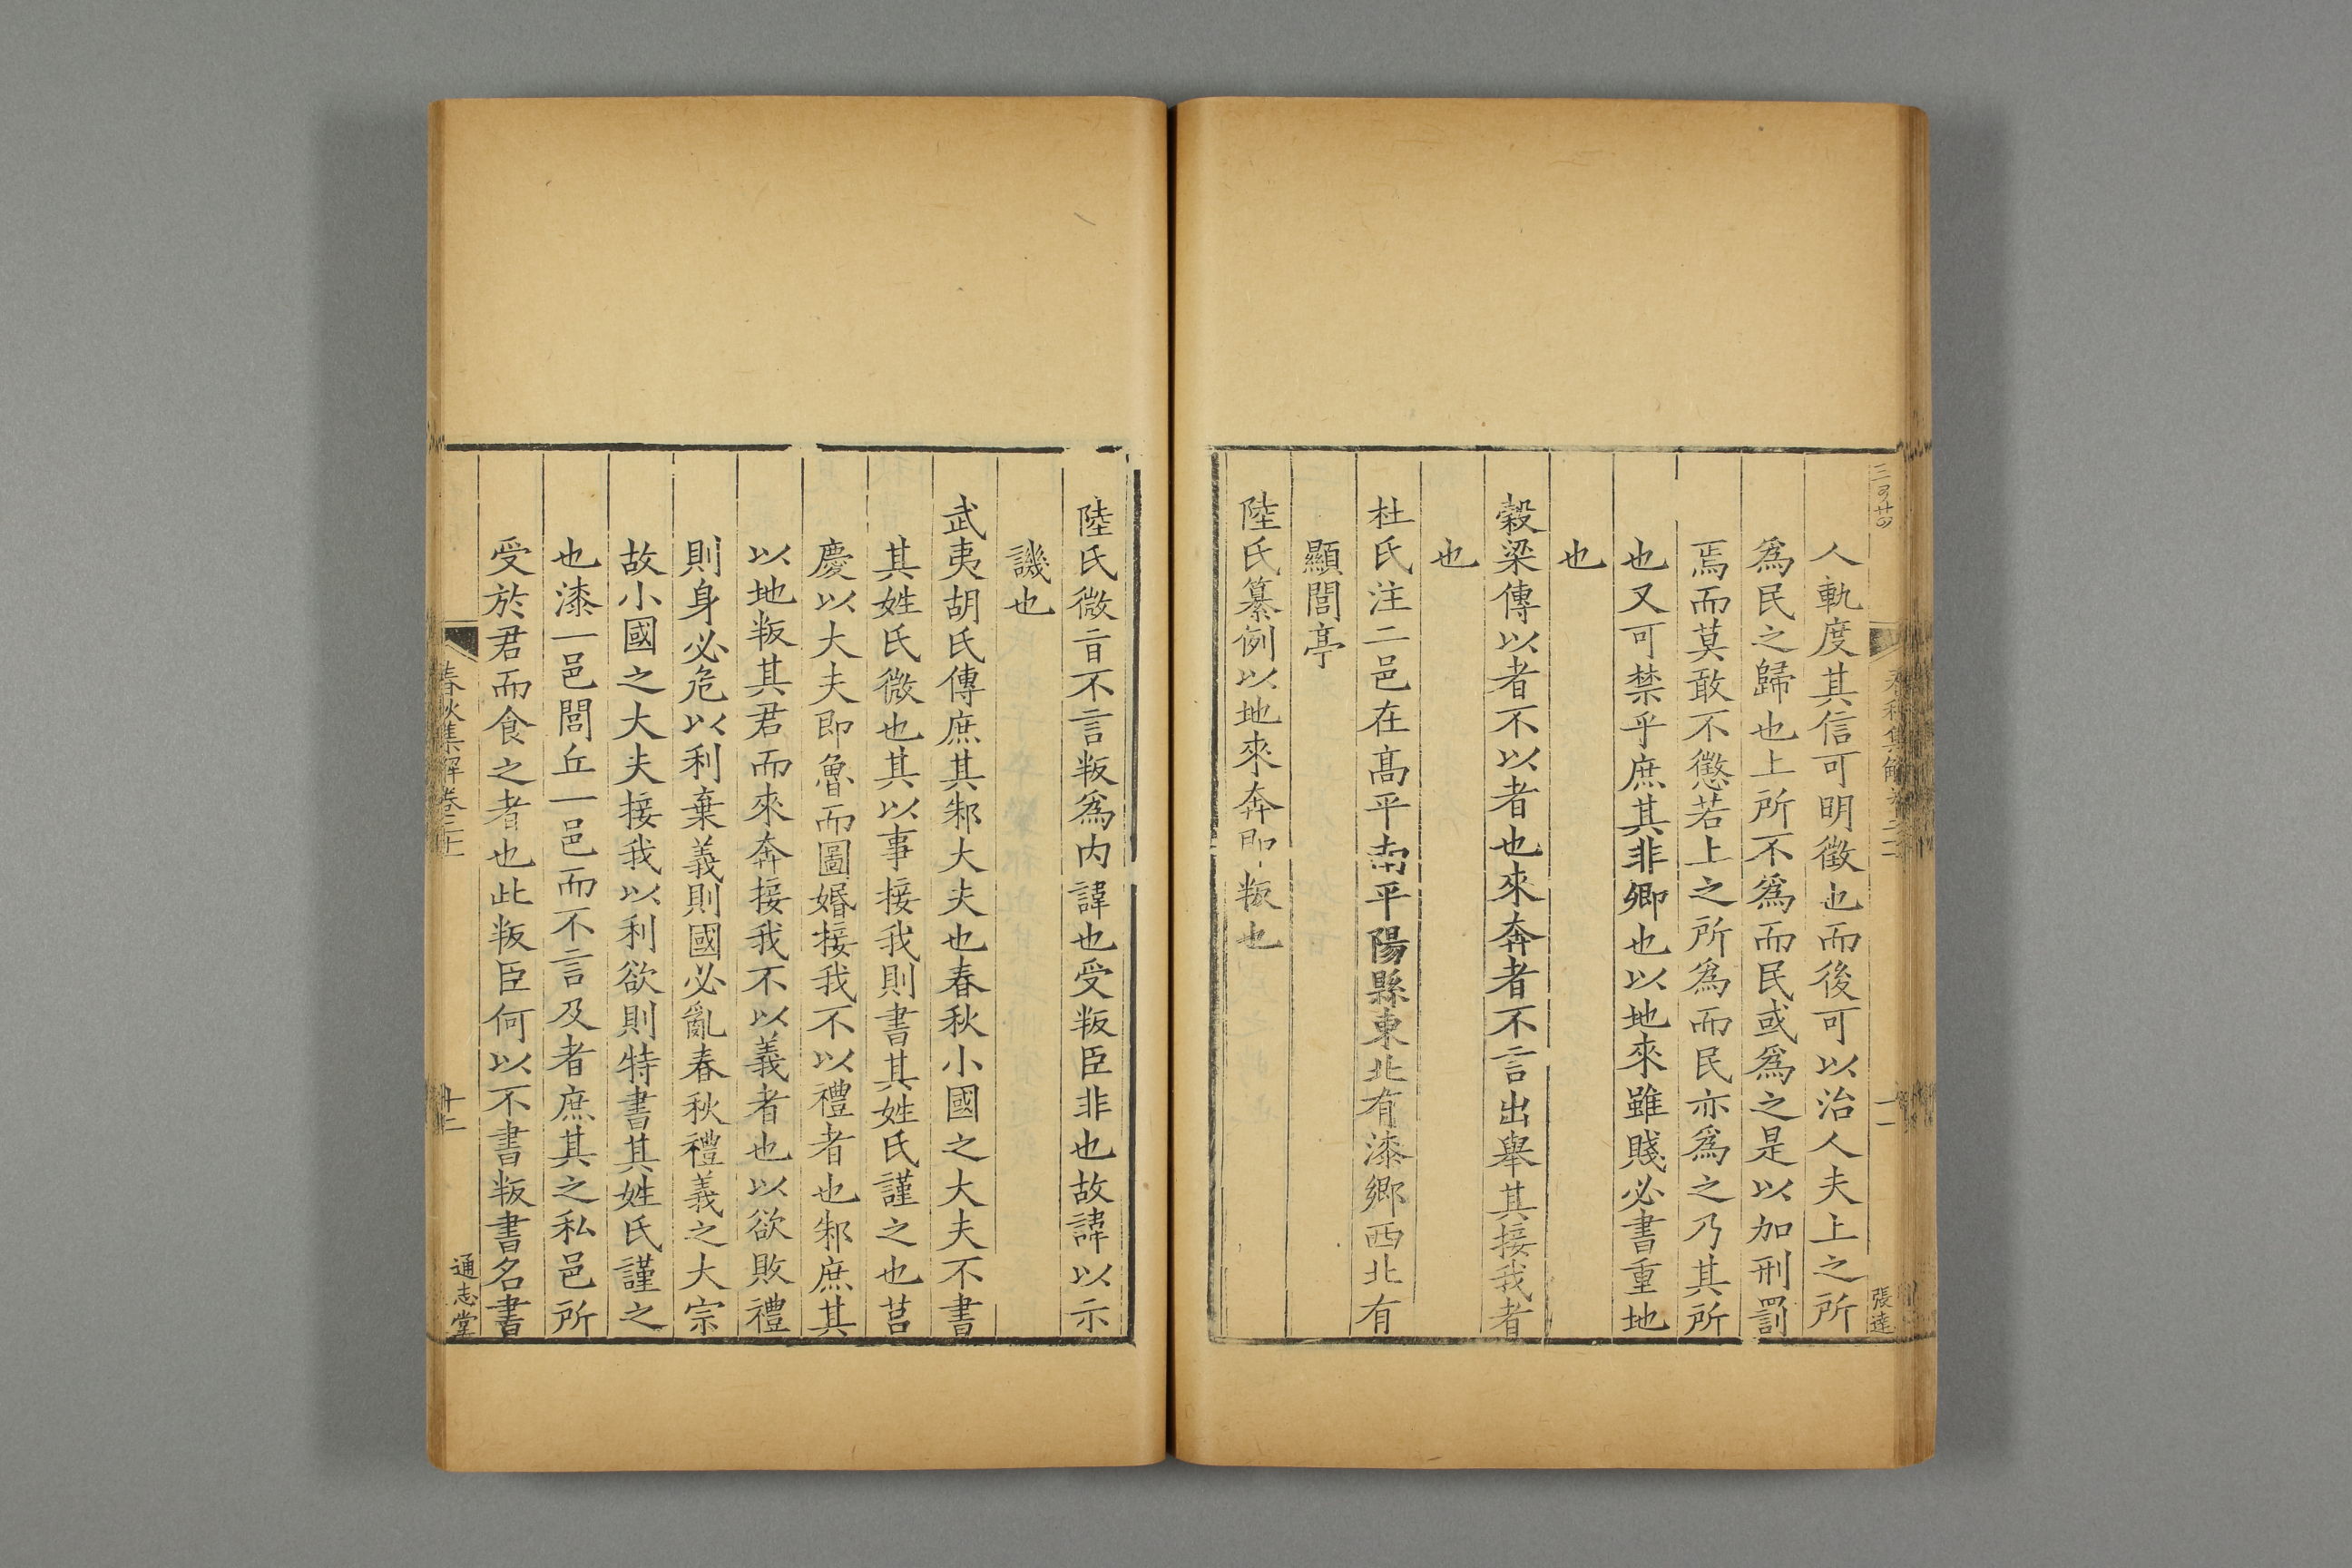 人軌度其信可明徵也而後可以治人夫上之所
爲民之歸也上所不爲而民或爲之是以加刑罰
焉而莫敢不懲若上之所爲而民亦爲之乃其所
也又可禁乎庶其非卿也以地來雖賤必書重地
也
穀梁傳以者不以者也來奔者不言出舉其接我者
也
杜氏注二邑在高平南平陽縣東北有漆鄉西北有
顯閭亭
陸氏纂例以地來奔即叛也
張達
陸氏微旨不言叛爲内諱也受叛臣非也故諱以示
譏也
武夷胡氏傳庶其邾大夫也春秋小國之大夫不書
其姓氏微也其以事接我則書其姓氏謹之也莒
慶以大夫即魯而圖婚接我不以禮者也邾庶其
以地叛其君而來奔接我不以義者也以欲敗禮
則身必危以利棄義則國必亂春秋禮義之大宗
故小國之大夫接我以利欲則特書其姓氏謹之
也漆一邑閭丘一邑而不言及者庶其之私邑所
受於君而食之者也此叛臣何以不書叛書名書
春秋集解卷二十
通志堂